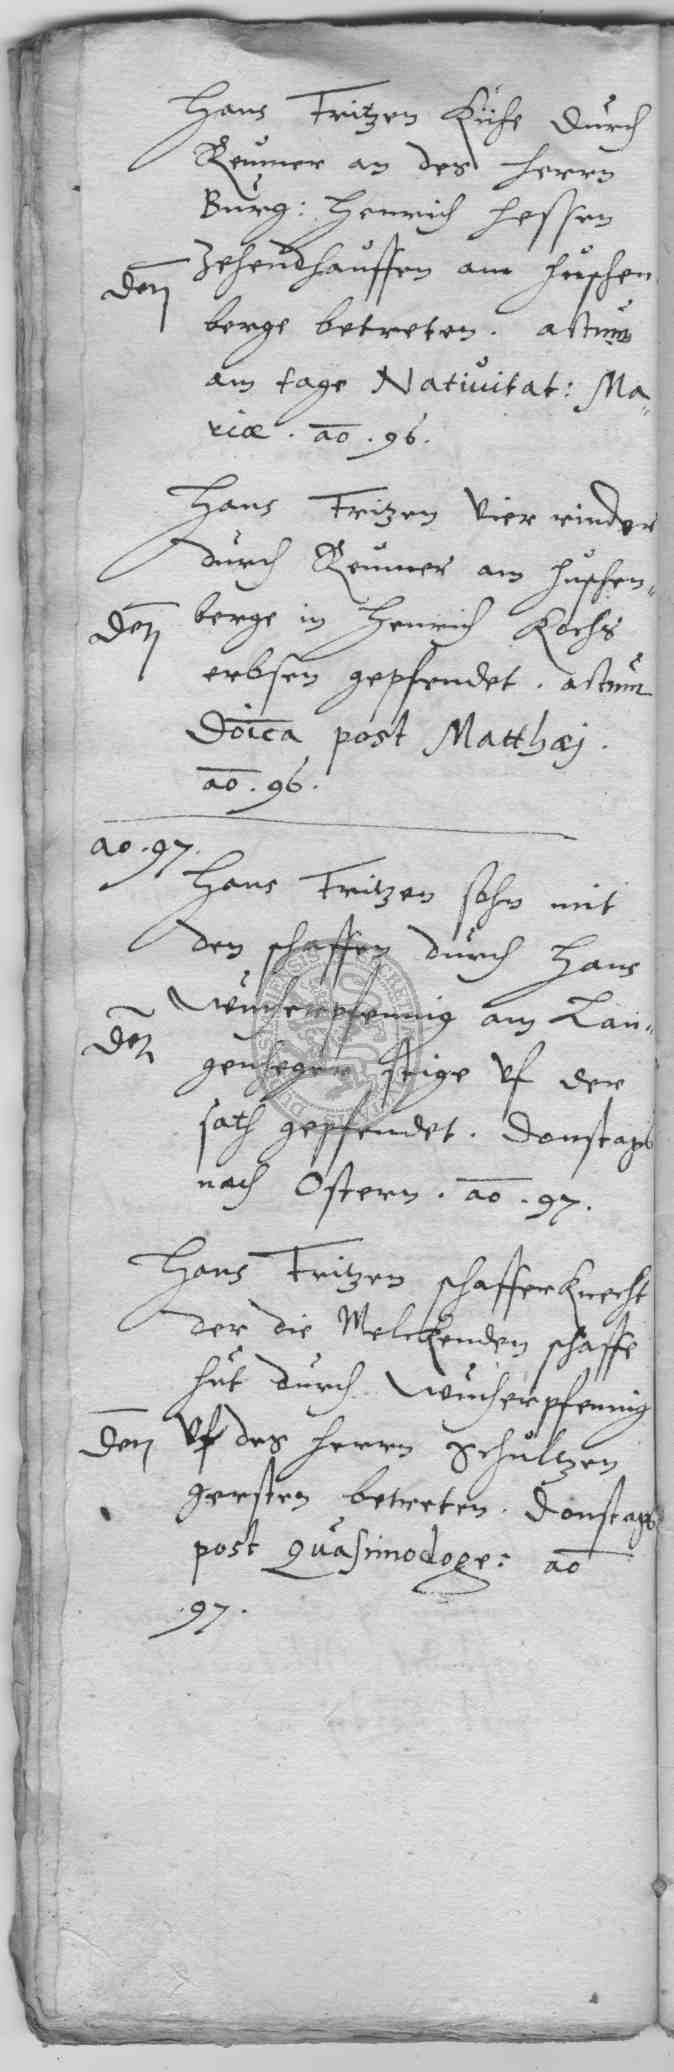 Hans Fritzen Kühe durch
Reumer an des Herrn
Burg: Henrich Hessen
Zehendhauffen am
den
berge betreten. actum
am tage Nativitat: Ma-
riæ. ao. 96.
Hans Fritzen vier rinder
durch Reumer am
den
berge in Henrich Kochs
erbsen gepfendet. actum
Doîca post Matthæj.
ao. 96.
ao. 97.
Hans Fritzen sohn mit
den schaffen durch Hans
Wucherpfennig am Lan-
den
stige vf der
sath gepfendet. Donstags
nach Ostern. ao. 97.
Hans Fritzen schafferknecht
der die Melckenden schaffe
hut durch Wucherpfennig
den
vf des Herrn Schultzen
gersten betreten. Donstags
post Quasimodoge: ao
97.